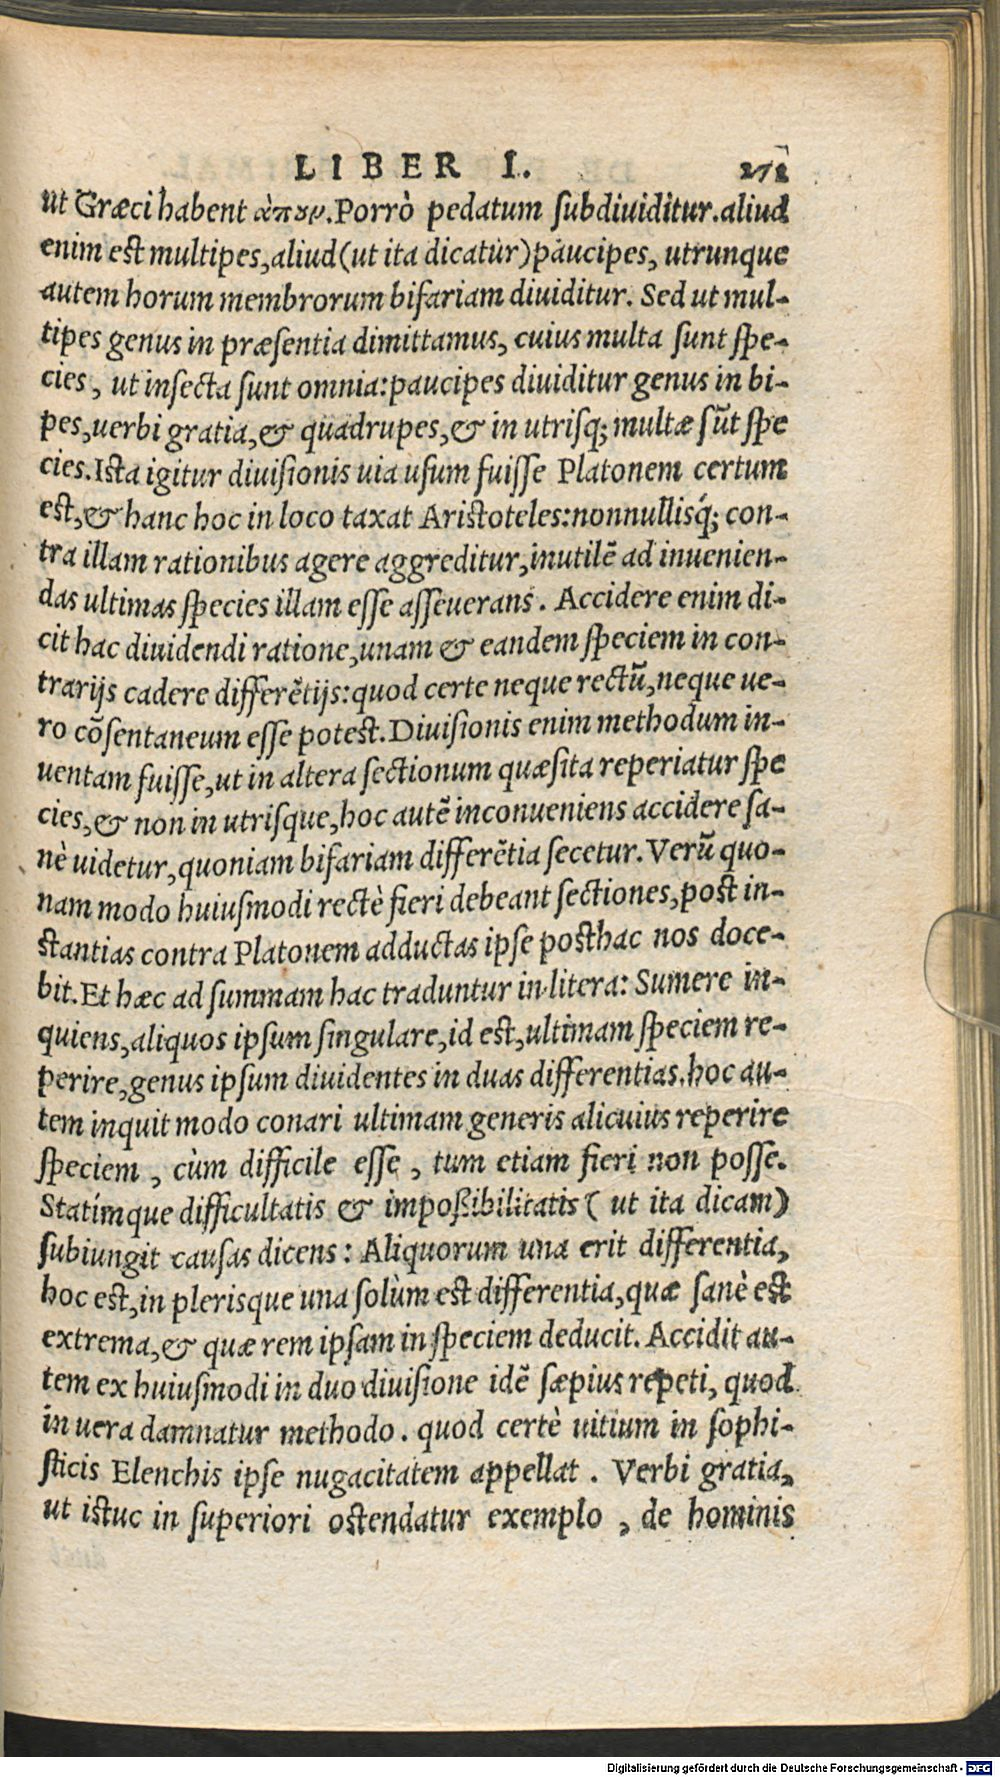 LIBER I. 271
ut Græci habent ἄπουν. Porrò pedatum subdiuiditur. aliud
enim est multipes, aliud (ut ita dicatur) paucipes, utrunque
autem horum membrorum bifariam diuiditur. Sed ut mul-
tipes genus in præsentia dimittamus, cuius multa sunt spe-
cies, ut insecta sunt omnia: paucipes diuiditur genus in bi-
pes, uerbi gratia, & quadrupes, & in utrisq; multæ sũt spe
cies. Ista igitur diuisionis uia usum fuisse Platonem certum
est, & hanc hoc in loco taxat Aristoteles: nonnullisq́; con-
tra illam rationibus agere aggreditur, inutilẽ ad inuenien-
das ultimas species illam esse asseuerans. Accidere enim di-
cit hac diuidendi ratione, unam & eandem speciem in con-
trarijs cadere differẽtijs: quod certe neque rectũ, neque ue-
ro cõsentaneum esse potest. Diuisionis enim methodum in-
uentam fuisse, ut in altera sectionum quæsita reperiatur spe
cies, & non in utrisque, hoc autẽ inconueniens accidere sa-
nè uidetur, quoniam bifariam differẽtia secetur. Verũ quo-
nam modo huiusmodi rectè fieri debeant sectiones, post in-
stantias contra Platonem adductas ipse posthac nos doce-
bit. Et hæc ad summam hac traduntur in litera: Sumere in-
quiens, aliquos ipsum singulare, id est, ultimam speciem re-
perire, genus ipsum diuidentes in duas differentias. hoc au-
tem inquit modo conari ultimam generis alicuius reperire
speciem, cùm difficile esse, tum etiam fieri non posse.
Statímque difficultatis & impoßibilitatis (ut ita dicam)
subiungit causas dicens: Aliquorum una erit differentia,
hoc est, in plerisque una solùm est differentia, quæ sanè est
extrema, & quæ rem ipsam in speciem deducit. Accidit au-
tem ex huiusmodi in duo diuisione idẽ sæpius repeti, quod
in uera damnatur methodo. quod certè uitium in sophi-
sticis Elenchis ipse nugacitatem appellat. Verbi gratia,
ut istuc in superiori ostendatur exemplo, de hominis
Digitalisierung gefördert durch die Deutsche Forschungsgemeinschaft - DFG